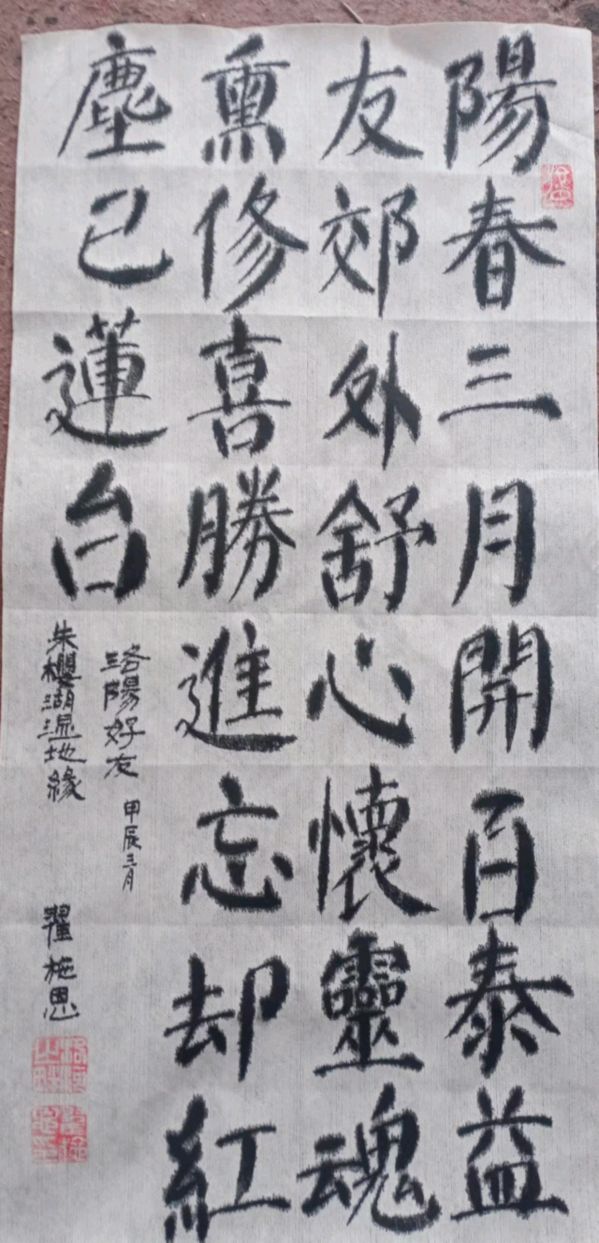 陽春三月開百泰益
友郊外舒心懷靈魂
熏修喜勝進忘却紅
塵已蓮台
洛陽好友
甲辰三月
朱櫻湖濕地緣
翟施恩